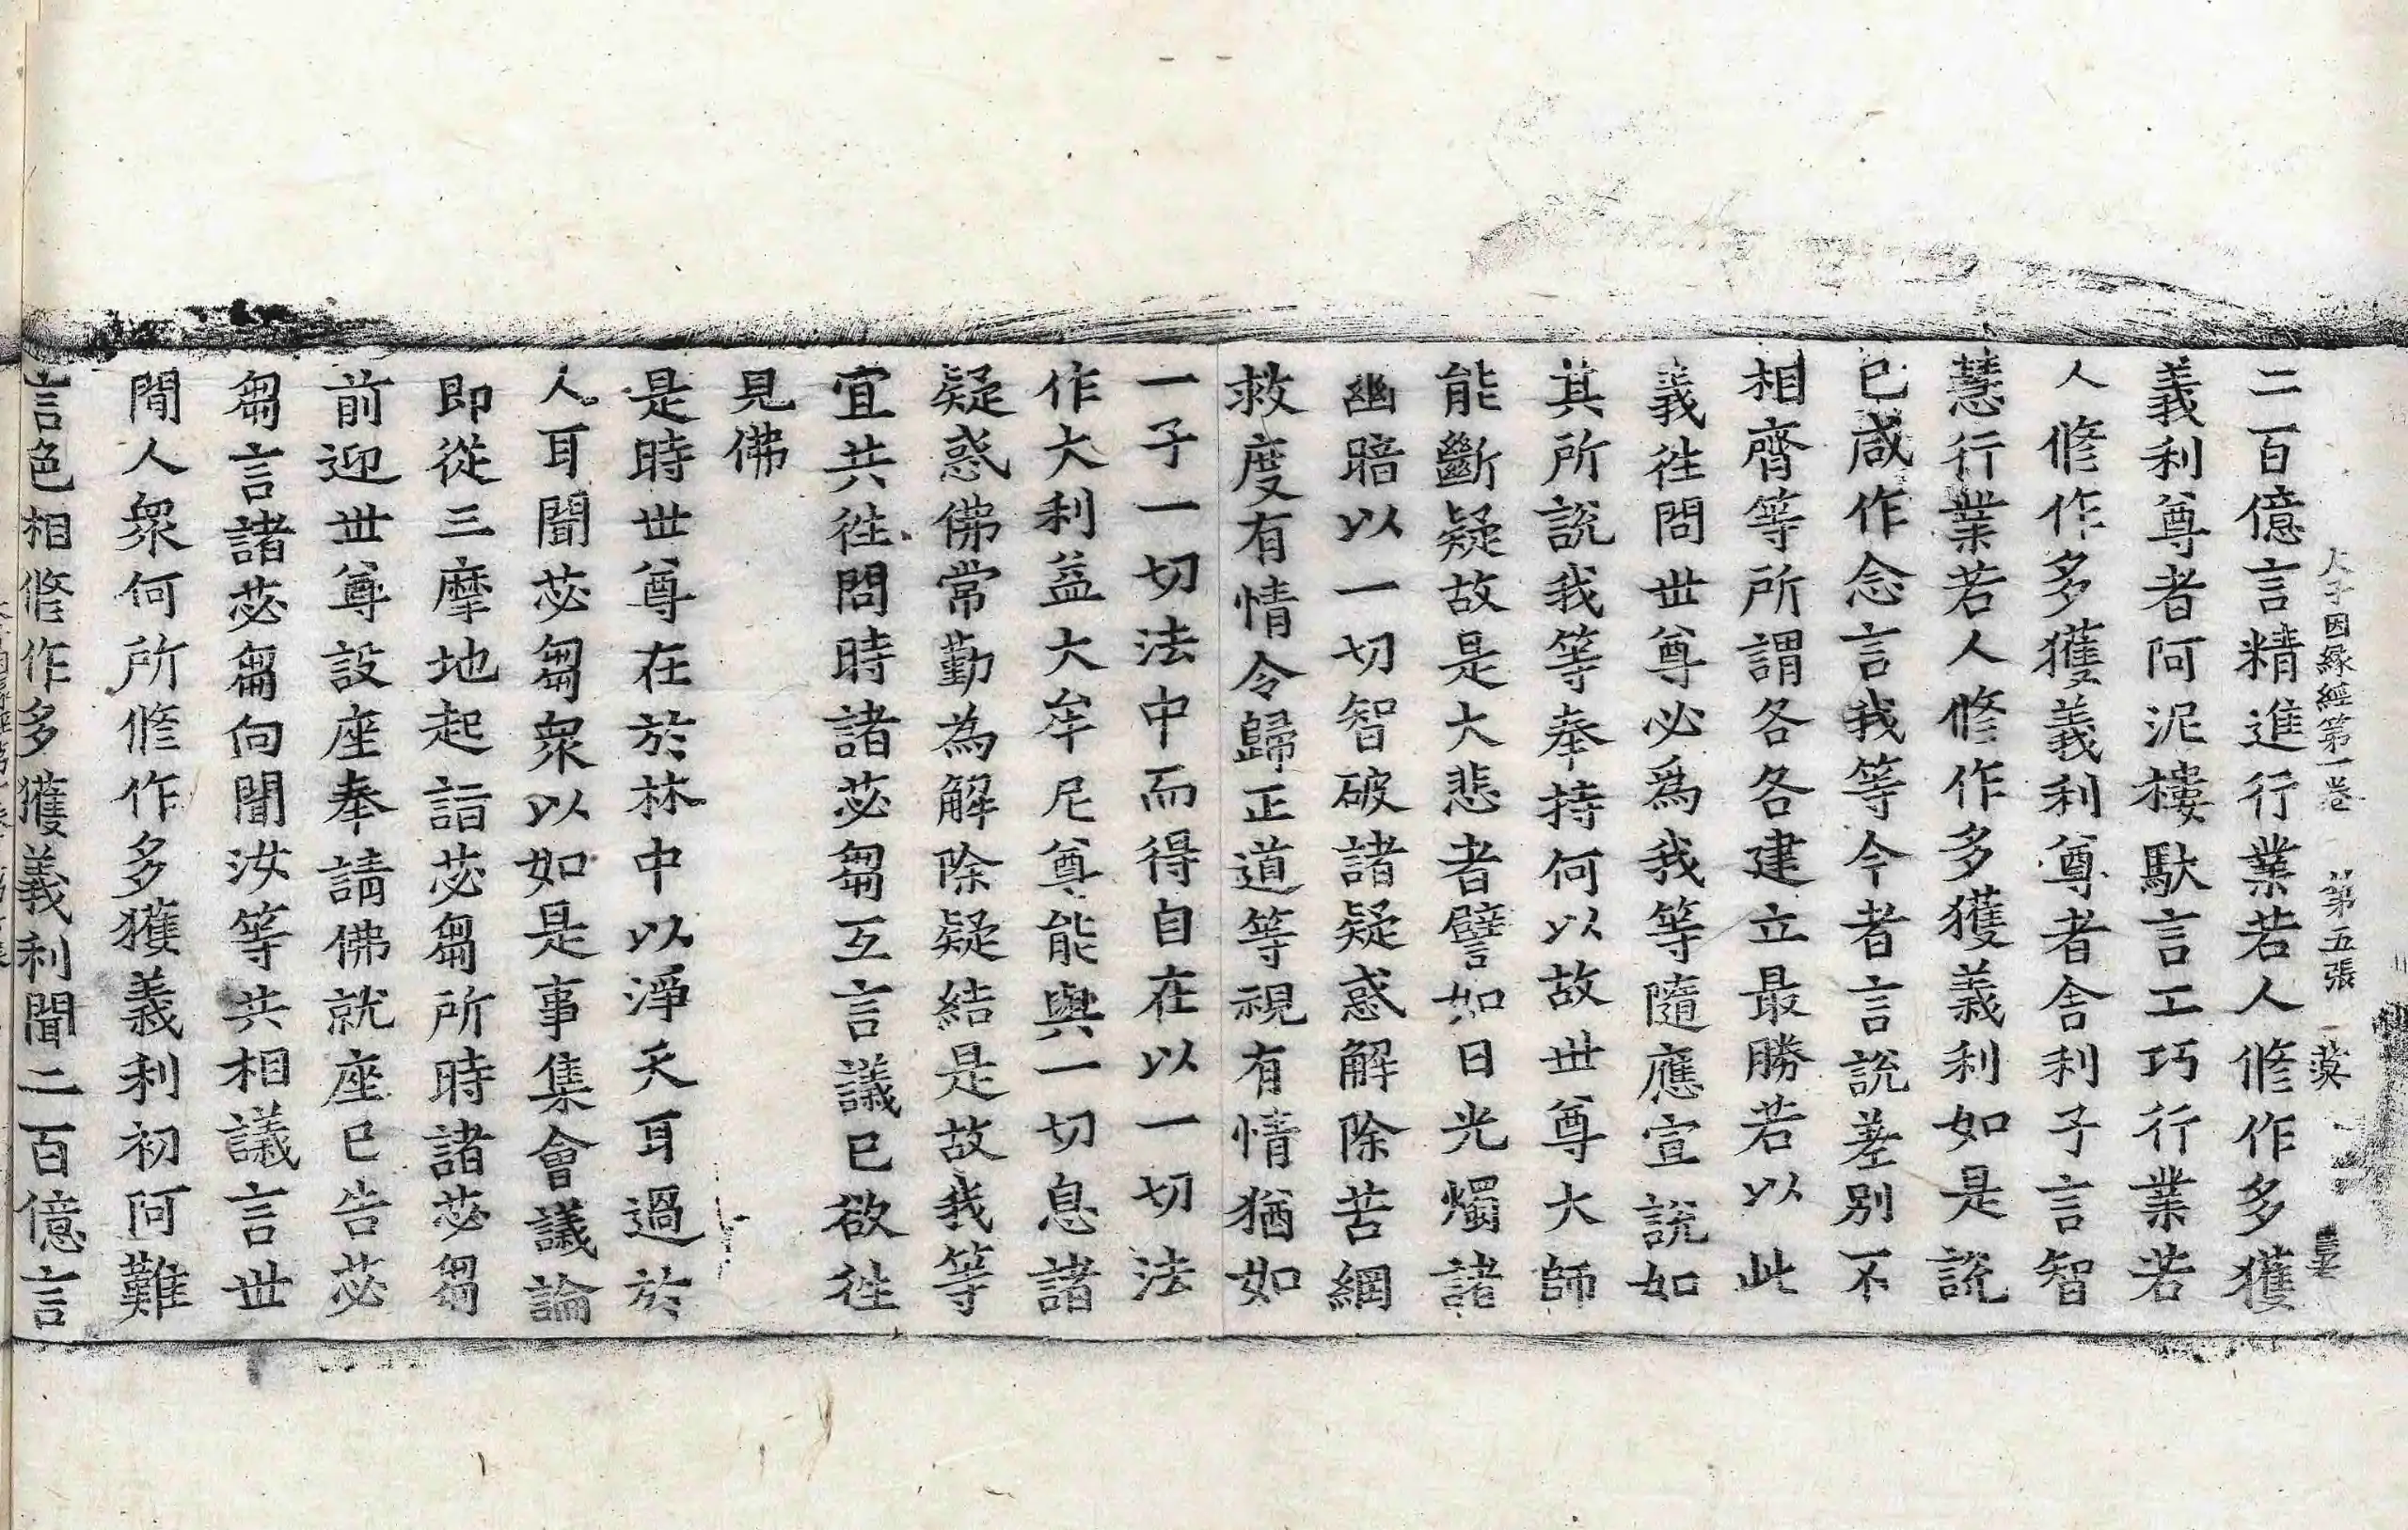 大子因緣經第一卷 第五張 漠
二百億言精進行業若人修作多獲
義利尊者阿泥樓馱言工巧行業若
人修作多獲義利尊者舍利子言智
慧行業若人修作多獲義利如是說
已咸作念言我等今者言說差別不
相齊等所謂各各建立最勝若以此
義徃問世尊必爲我等隨應宣說如
其所說我等奉持何以故世尊大師
能斷疑故是大悲者譬如日光燭諸
幽暗以一切智破諸疑惑解除苦網
救度有情令歸正道等視有情猶如
一子一切法中而得自在以一切法
作大利益大牟尼尊能與一切息諸
疑惑佛常勤為解除疑結是故我等
宜共徃問時諸苾芻互言議已欲徃
見佛
是時世尊在於林中以淨天耳過於
人耳聞苾芻衆以如是事集會議論
即從三摩地起詣苾芻所時諸苾芻
前迎世尊設座奉請佛就座已告苾
芻言諸苾芻向聞汝等共相議言世
間人衆何所修作多獲義利初阿難
言色相修作多獲義利聞二百億言